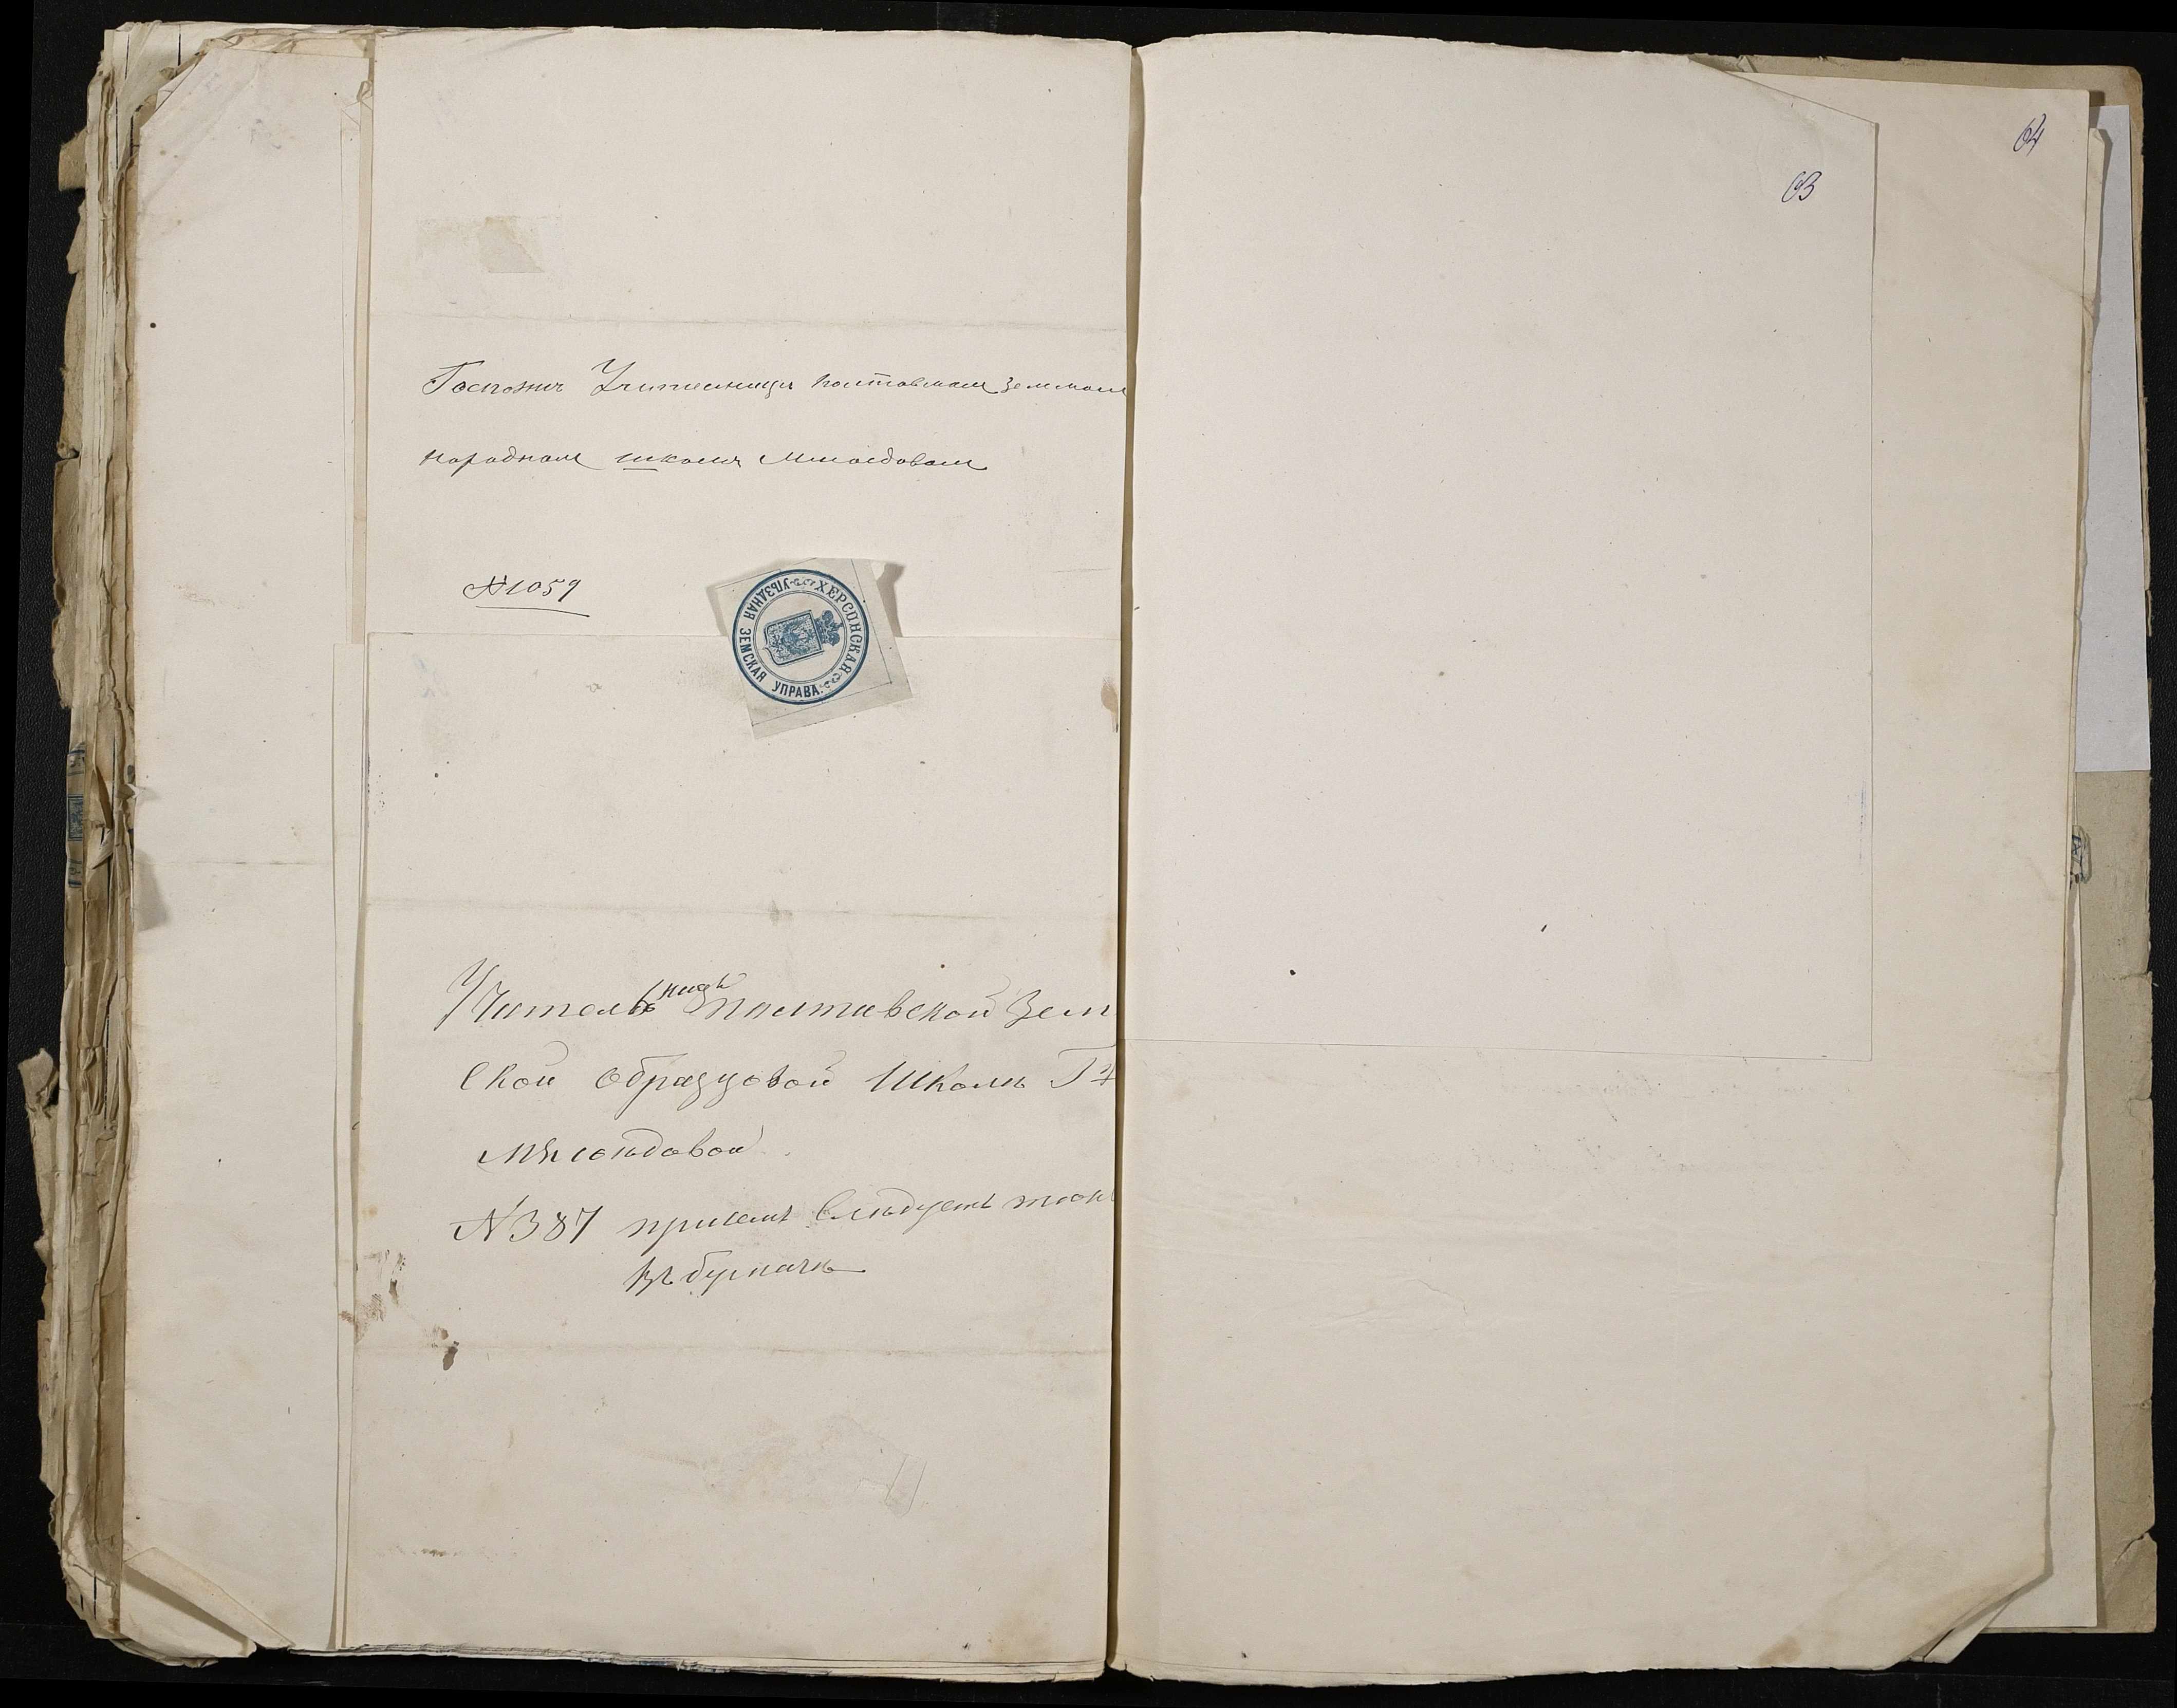 64
63
Госпожѣ Учительницѣ Полтавской Земской
народной школы Мсиюдовой
№ 1059
ХЕРСОНСКАЯ УѢЗДНАЯ ЗЕМСКАЯ УПРАВА
Учительницѣ Полтавской Зем
ской образцовой Школы Г-ж
№ 387 присемъ Слѣдуетъ
въ бумагѣ